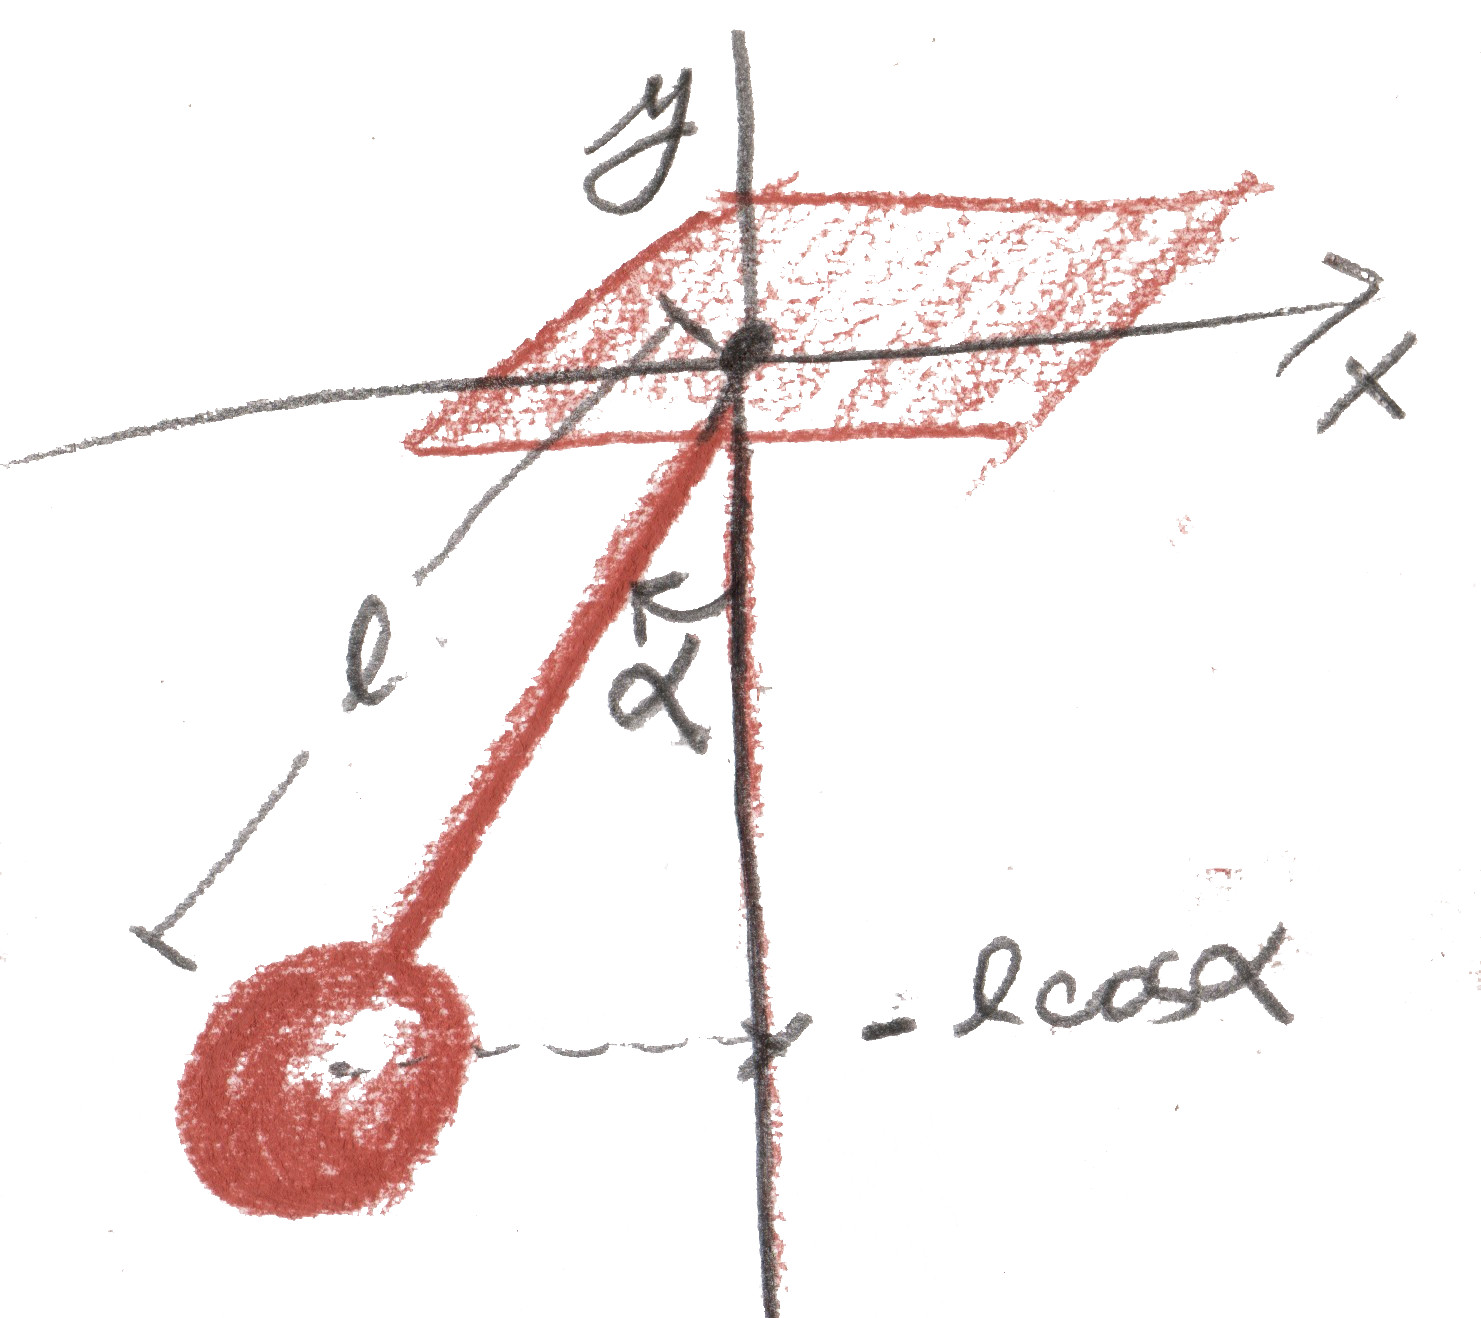 y
x
l
α
- l cos α